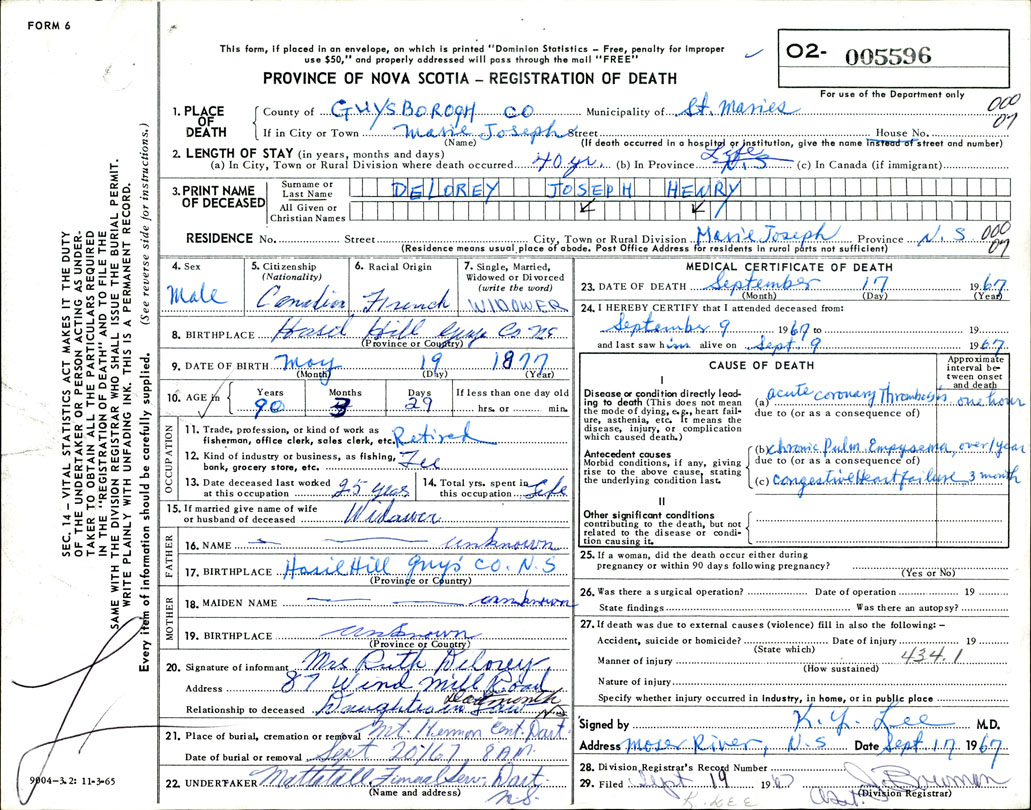 FORM 6
This form, if placed in an envelope, on which is printed "Dominion Statistics – Free, penalty for improper
use $50," and properly addressed will pass through the mail "FREE"
PROVINCE OF NOVA SCOTIA – REGISTRATION OF DEATH
02- 005596
For use of the Department only
000
07
1. PLACE OF DEATH
County of GUYSBOROGH CO Municipality of St. Maries
If in City or Town Marie Joseph Street House No.
(Name) (If death occurred in a hospital or institution, give the name instead of street and number)
2. LENGTH OF STAY (in years, months and days)
(a) In City, Town or Rural Division where death occurred 40 yr. (b) In Province Life N.S (c) In Canada (if immigrant)
3. PRINT NAME OF DECEASED
Surname or Last Name DELOREY JOSEPH HENRY
All Given or Christian Names
RESIDENCE No. Street City, Town or Rural Division Marie Joseph Province N.S 000 07
(Residence means usual place of abode. Post Office Address for residents in rural parts not sufficient)
SEC. 14 – VITAL STATISTICS ACT MAKES IT THE DUTY
OF THE UNDERTAKER OR PERSON ACTING AS UNDER-
TAKER TO OBTAIN ALL THE PARTICULARS REQUIRED
IN THE "REGISTRATION OF DEATH" AND TO FILE THE
SAME WITH THE DIVISION REGISTRAR WHO SHALL ISSUE THE BURIAL PERMIT.
WRITE PLAINLY WITH UNFADING INK. THIS IS A PERMANENT RECORD.
Every item of information should be carefully supplied. (See reverse side for instructions.)
4. Sex Male
5. Citizenship (Nationality) Canadian
6. Racial Origin French
7. Single, Married, Widowed or Divorced (write the word) WIDOWER
8. BIRTHPLACE Hill Guys Co NS
(Province or Country)
9. DATE OF BIRTH May 19 1877
(Month) (Day) (Year)
10. AGE in Years 90 Months 3 Days 29 If less than one day old hrs. or min.
OCCUPATION
11. Trade, profession, or kind of work as
fisherman, office clerk, sales clerk, etc. Retired
12. Kind of industry or business, as fishing,
bank, grocery store, etc.
13. Date deceased last worked
at this occupation 25 years
14. Total yrs. spent in
this occupation Life
15. If married give name of wife
or husband of deceased Widower
FATHER
16. NAME — — unknown
17. BIRTHPLACE Hill Guys CO. N.S
(Province or Country)
MOTHER
18. MAIDEN NAME — — unknown
19. BIRTHPLACE unknown
(Province or Country)
20. Signature of informant Mrs Ruth Delorey,
Address 87 Wind Mill Road
Dartmouth N.S.
Relationship to deceased Daughter in Law
21. Place of burial, cremation or removal Mt. Hermon Cem't Dart.
Date of burial or removal Sept 20/67 8 AM.
22. UNDERTAKER Mattatall Funeral Serv. Dart. N.S.
(Name and address)
9004-3.2: 11-3-65
MEDICAL CERTIFICATE OF DEATH
23. DATE OF DEATH September 17 1967
(Month) (Day) (Year)
24. I HEREBY CERTIFY that I attended deceased from:
September 9 1967 to 19
and last saw him alive on Sept. 9 1967.
CAUSE OF DEATH
Approximate interval between onset and death
I
Disease or condition directly lead-
ing to death (This does not mean
the mode of dying, e.g., heart fail-
ure, asthenia, etc. It means the
disease, injury, or complication
which caused death.)
(a) acute coronary Thrombosis one hour
due to (or as a consequence of)
Antecedent causes
Morbid conditions, if any, giving
rise to the above cause, stating
the underlying condition last.
(b) chronic Pulm. Empysema, over 1 year
due to (or as a consequence of)
(c) congestive Heart failure 3 month
II
Other significant conditions
contributing to the death, but not
related to the disease or condi-
tion causing it.
25. If a woman, did the death occur either during
pregnancy or within 90 days following pregnancy?
(Yes or No)
26. Was there a surgical operation? Date of operation 19
State findings Was there an autopsy?
27. If death was due to external causes (violence) fill in also the following: –
Accident, suicide or homicide? Date of injury 19
(State which) 434.1
Manner of injury
(How sustained)
Nature of injury
Specify whether injury occurred in industry, in home, or in public place
Signed by K. Y. Lee M.D.
Address Moser River, N.S Date Sept. 17 1967
28. Division Registrar's Record Number
29. Filed Sept 19 1967
(Division Registrar)
K. LEE